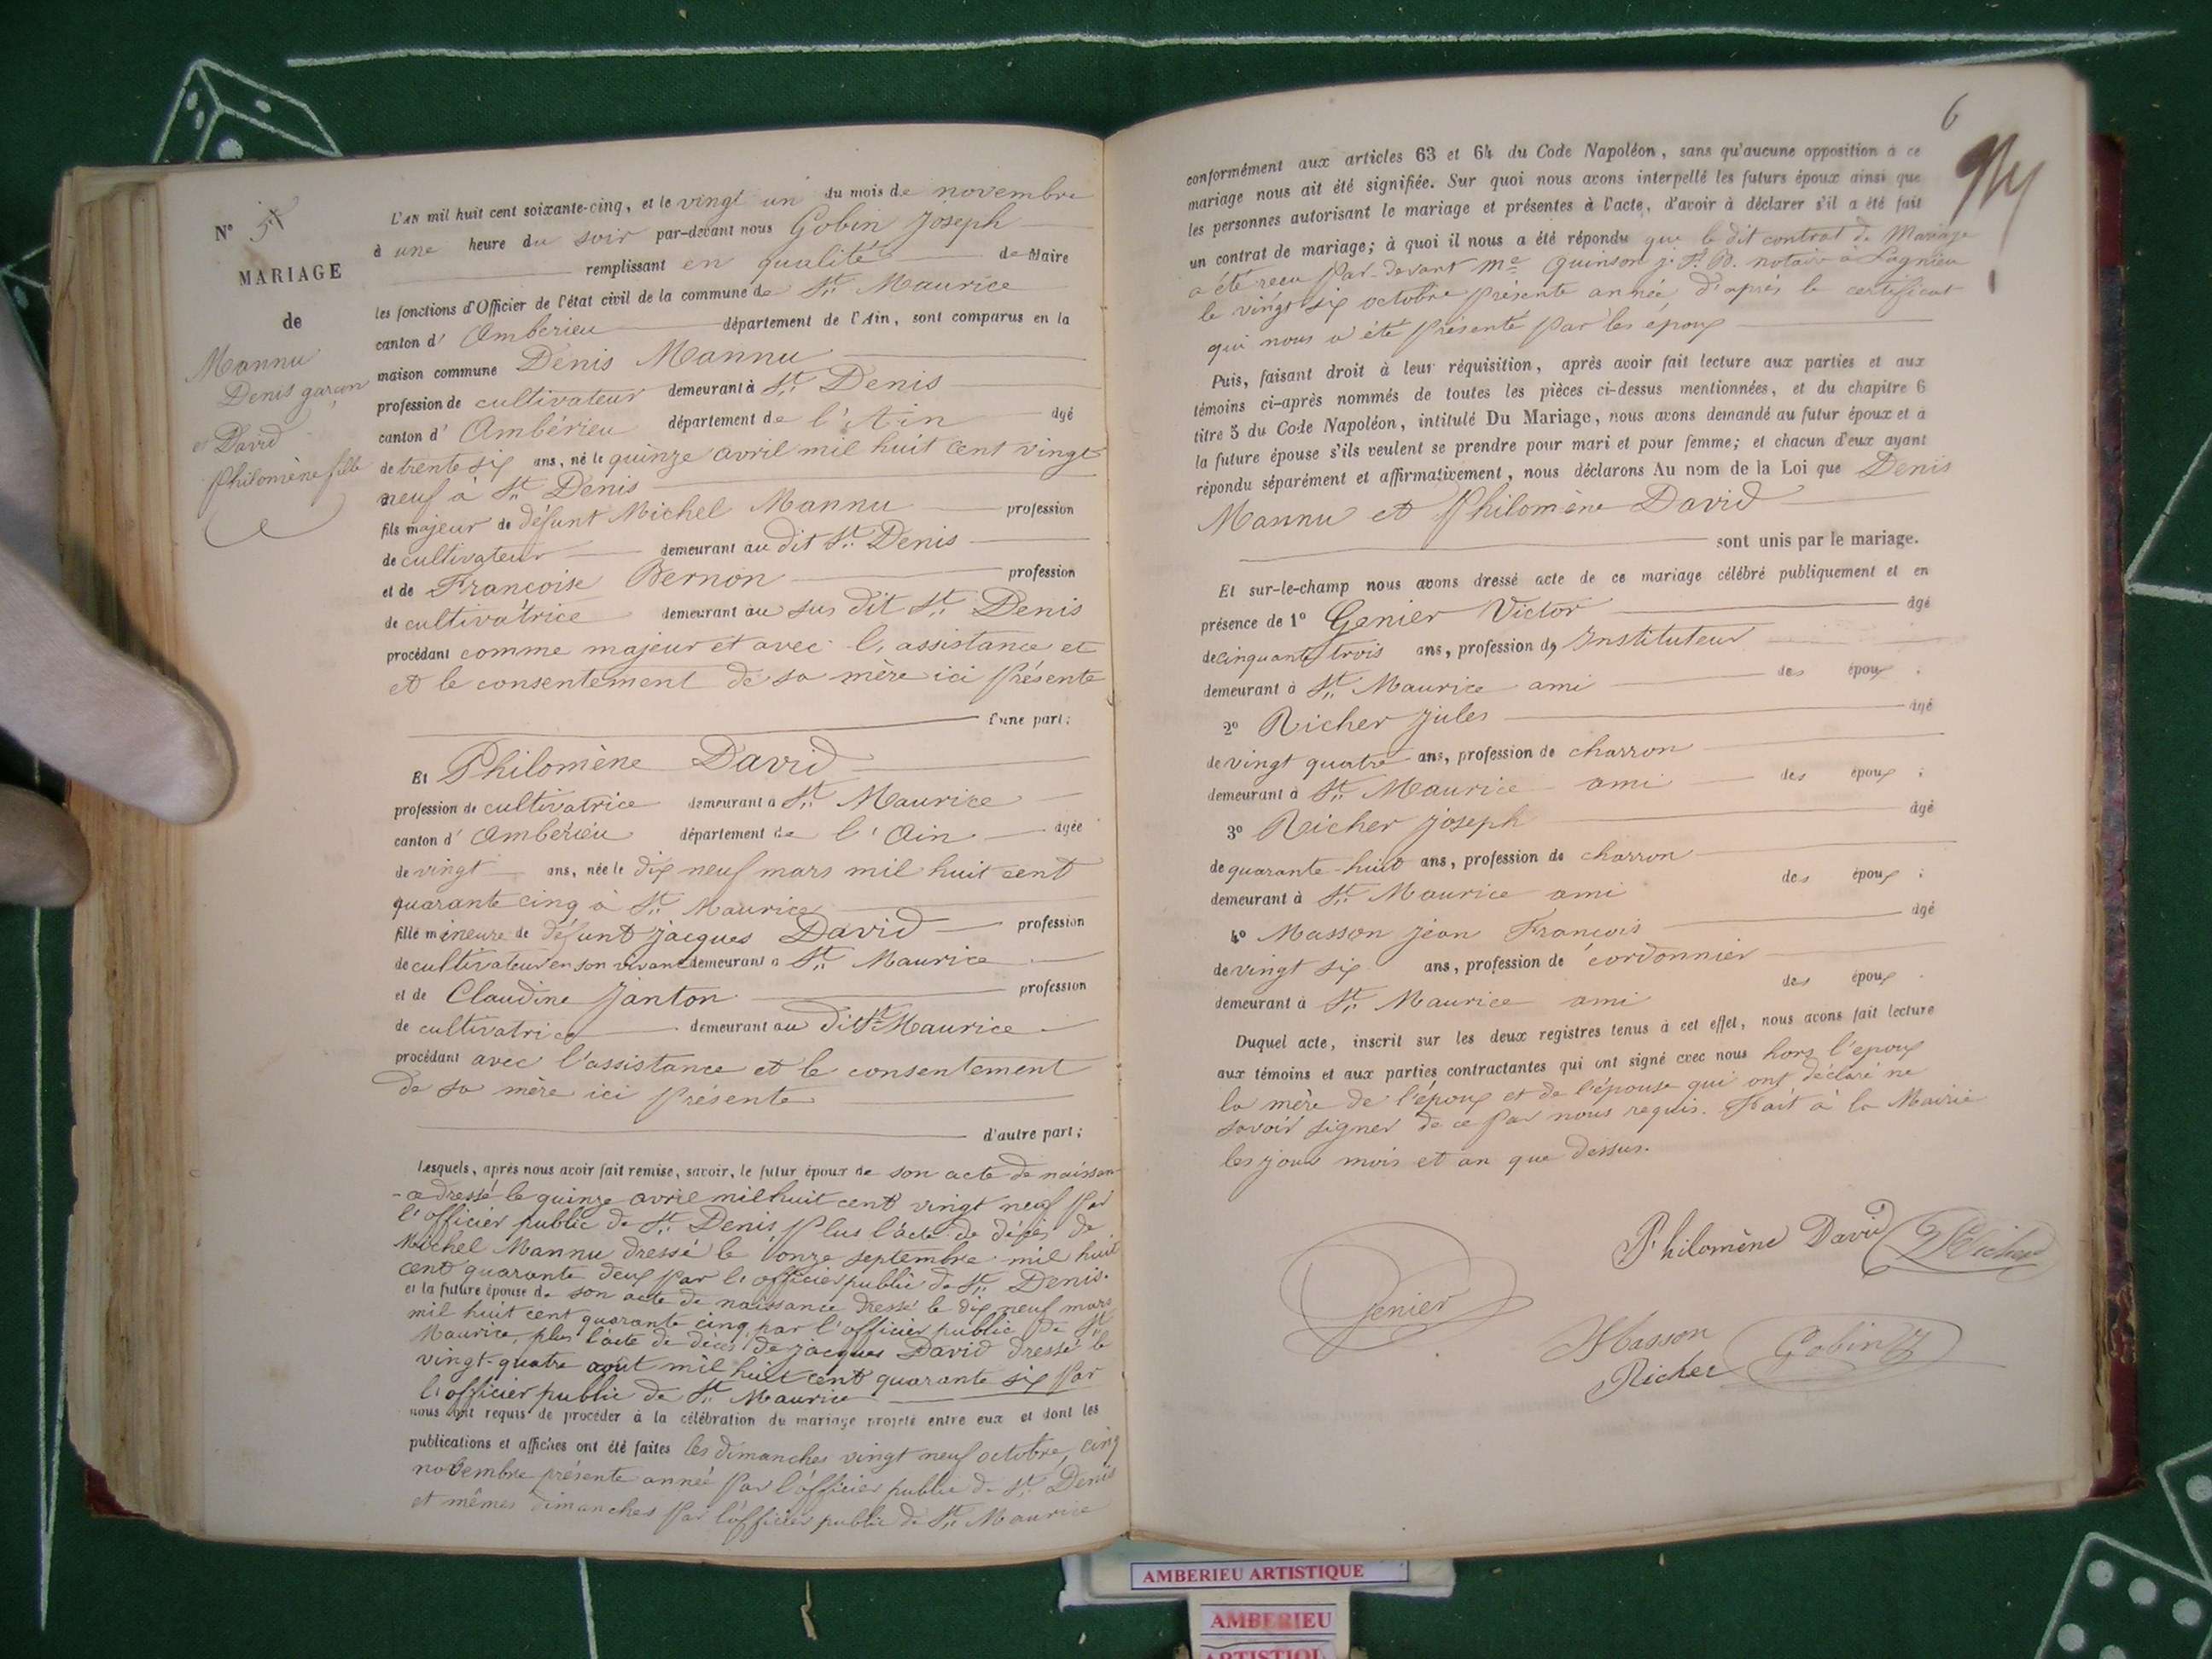 N° 5
MARIAGE
de
Mannu
Denis garçon
et David
Philomène fille
L'AN mil huit cent soixante-cinq, et le vingt un du mois de novembre
à une heure du soir par-devant nous Gobin Joseph
remplissant en qualité de Maire
les fonctions d'Officier de l'état civil de la commune de St Maurice
canton d' Ambérieu département de l'Ain, sont comparus en la
maison commune Denis Mannu
profession de cultivateur demeurant à St Denis
canton d' Ambérieu département de l'Ain âgé
de trente six ans, né le quinze avril mil huit cent vingt
neuf à St Denis
fils majeur de défunt Michel Mannu profession
de cultivateur demeurant au dit St Denis
et de Françoise Bernon profession
de cultivatrice demeurant au sus dit St Denis
procédant comme majeur et avec l'assistance et
et le consentement de sa mère ici présente
d'une part;
Et Philomène David
profession de cultivatrice demeurant à St Maurice
canton d' Ambérieu département de l'Ain âgée
de vingt ans, née le dix neuf mars mil huit cent
quarante cinq à St Maurice
fille mineure de défunt Jacques David profession
de cultivateur en son vivant demeurant à St Maurice
et de Claudine Janton profession
de cultivatrice demeurant au dit St Maurice
procédant avec l'assistance et le consentement
de sa mère ici présente
d'autre part;
Lesquels, après nous avoir fait remise, savoir, le futur époux de son acte de naissan
-ce dressé le quinze avril mil huit cent vingt neuf par
l'officier public de St Denis, plus l'acte de décès de
Michel Mannu dressé le onze septembre mil huit
cent quarante deux par l'officier public de St Denis.
et la future épouse de son acte de naissance dressé le dix neuf mars
mil huit cent quarante cinq par l'officier public de St
Maurice, plus l'acte de décès de Jacques David dressé le
vingt-quatre août mil huit cent quarante six par
l'officier public de St Maurice
nous ont requis de procéder à la célébration du mariage projeté entre eux et dont les
publications et affiches ont été faites les dimanches vingt neuf octobre, cinq
novembre présente année par l'officier public de St Denis
et mêmes dimanches par l'officier public de St Maurice
6
conformément aux articles 63 et 64 du Code Napoléon, sans qu'aucune opposition à ce
mariage nous ait été signifiée. Sur quoi nous avons interpellé les futurs époux ainsi que
les personnes autorisant le mariage et présentes à l'acte, d'avoir à déclarer s'il a été fait
un contrat de mariage; à quoi il nous a été répondu que le dit contrat de Mariage
a été reçu par-devant Me Quinson J. notaire à Lagnieu
le vingt six octobre présente année, d'après le certificat
qui nous a été présenté par les époux
Puis, faisant droit à leur réquisition, après avoir fait lecture aux parties et aux
témoins ci-après nommés de toutes les pièces ci-dessus mentionnées, et du chapitre 6
titre 5 du Code Napoléon, intitulé Du Mariage, nous avons demandé au futur époux et à
la future épouse s'ils veulent se prendre pour mari et pour femme; et chacun d'eux ayant
répondu séparément et affirmativement, nous déclarons Au nom de la Loi que Denis
Mannu et Philomène David
sont unis par le mariage.
Et sur-le-champ nous avons dressé acte de ce mariage célébré publiquement et en
présence de 1° Genier Victor âgé
de cinquante trois ans, profession d Instituteur
demeurant à St Maurice ami des époux
2° Richer Jules âgé
de vingt quatre ans, profession de charron
demeurant à St Maurice ami des époux ;
3° Richer Joseph âgé
de quarante-huit ans, profession de charron
demeurant à St Maurice ami des époux ;
4° Masson Jean François âgé
de vingt six ans, profession de cordonnier
demeurant à St Maurice ami des époux
Duquel acte, inscrit sur les deux registres tenus à cet effet, nous avons fait lecture
aux témoins et aux parties contractantes qui ont signé avec nous hors l'époux
la mère de l'époux et de l'épouse qui ont déclaré ne
savoir signer de ce par nous requis. Fait à la Mairie
les jour mois et an que dessus.
Philomène David
Richer
Genier
Masson
Gobin J
Richer
AMBERIEU ARTISTIQUE
AMBERIEU
ARTISTIQU